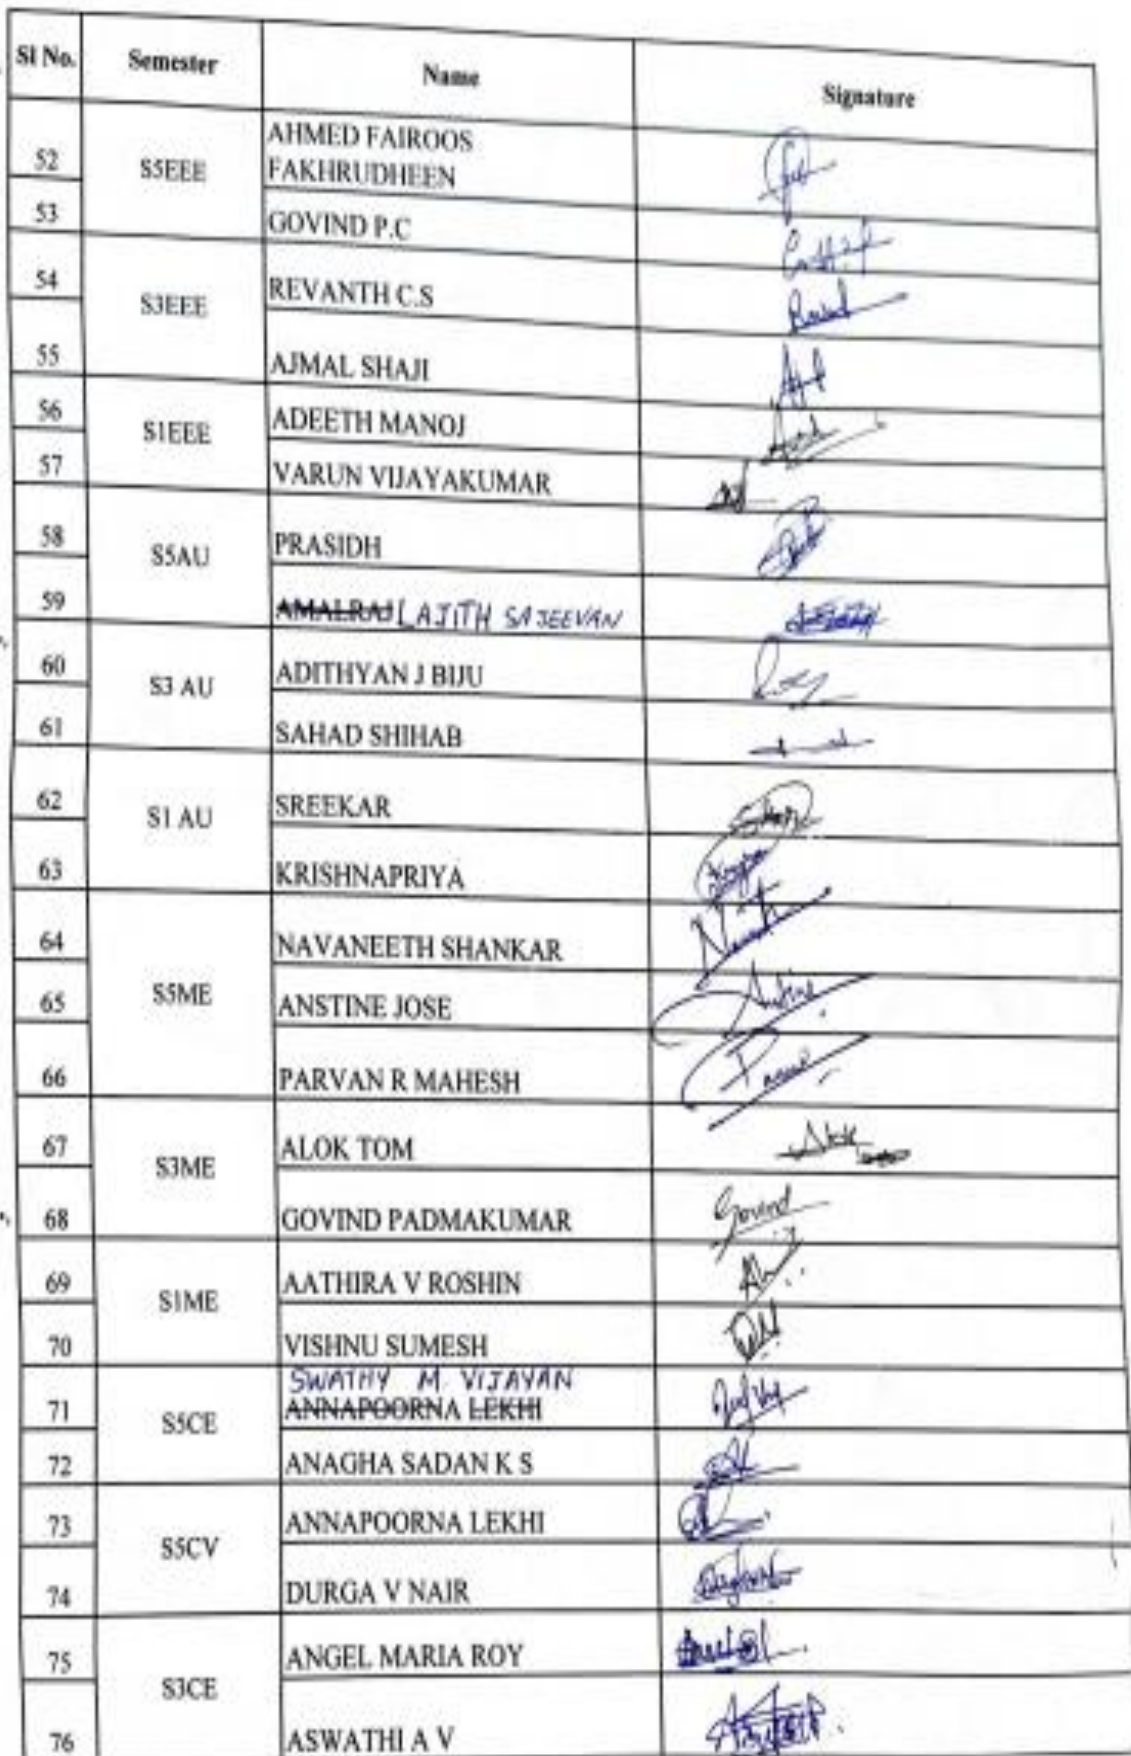 Sl No. Semester Name Signature
52 S5EEE AHMED FAIROOS
FAKHRUDHEEN
53 GOVIND P.C
54 S3EEE REVANTH C.S
55 AJMAL SHAJI
56 S1EEE ADEETH MANOJ
57 VARUN VIJAYAKUMAR
58 S5AU PRASIDH
59 AMALRAJ LAJITH SAJEEVAN
60 S3 AU ADITHYAN J BIJU
61 SAHAD SHIHAB
62 S1 AU SREEKAR
63 KRISHNAPRIYA
64 S5ME NAVANEETH SHANKAR
65 ANSTINE JOSE
66 PARVAN R MAHESH
67 S3ME ALOK TOM Alok
68 GOVIND PADMAKUMAR Govind
69 S1ME AATHIRA V ROSHIN
70 VISHNU SUMESH
SWATHY M. VIJAYAN
71 S5CE ANNAPOORNA LEKHI
72 ANAGHA SADAN K S
73 S5CV ANNAPOORNA LEKHI
74 DURGA V NAIR
75 S3CE ANGEL MARIA ROY
76 ASWATHI A V